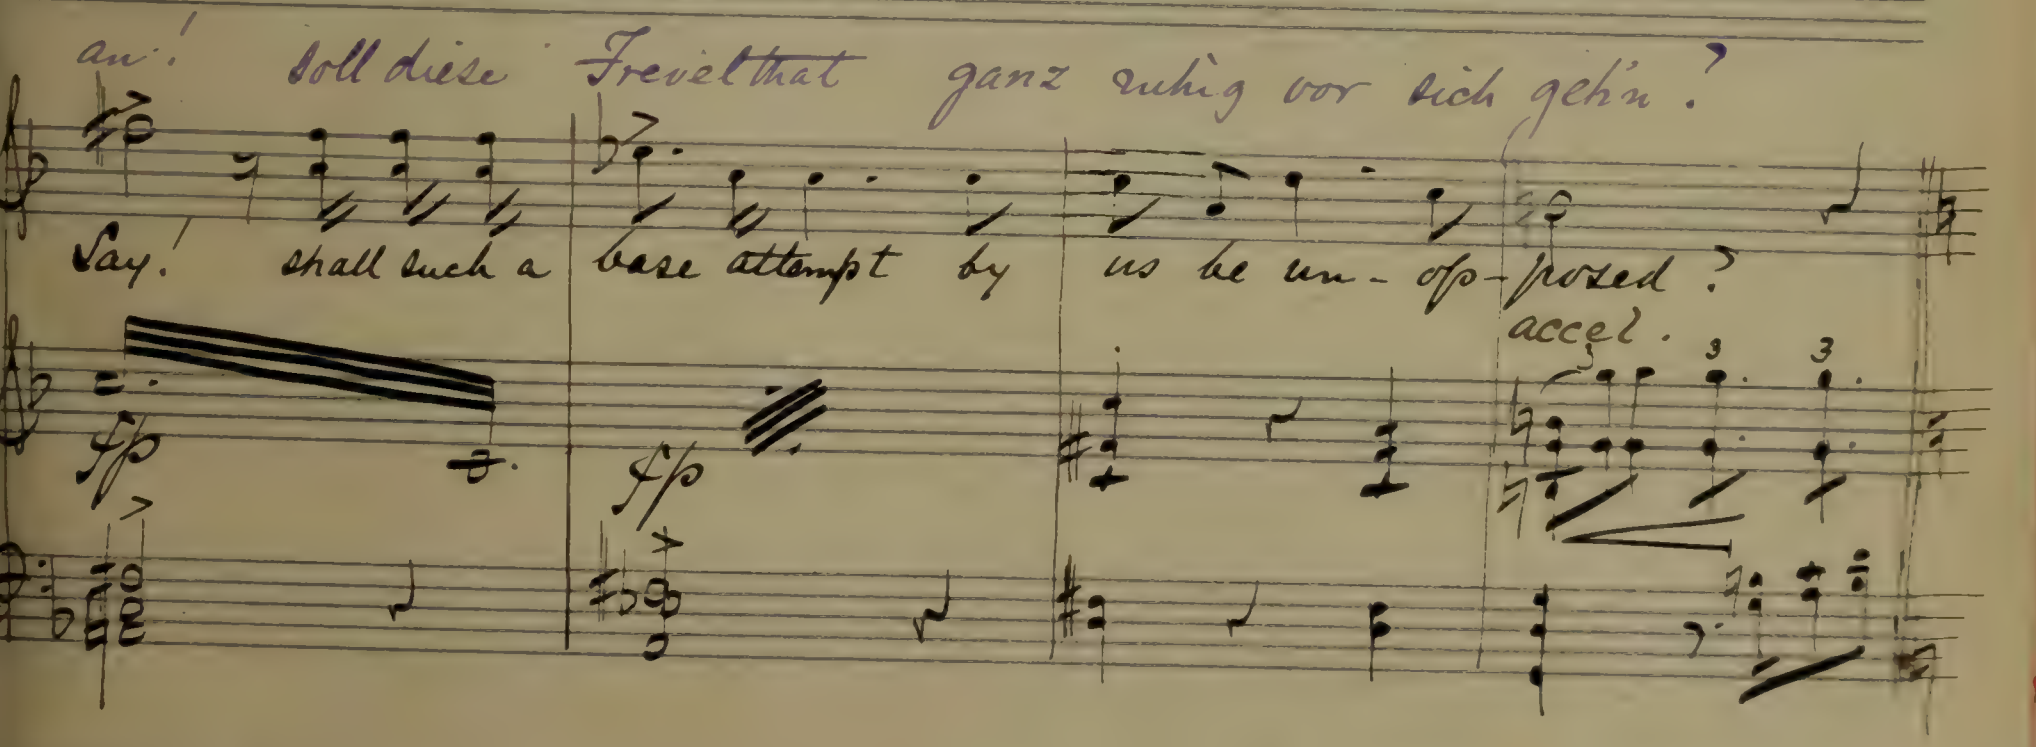 an! soll diese Frevelthat ganz ruhig vor sich geh'n?
Say! shall such a base attempt by us be un-op-posed?
accel.
3 3 3
fp fp